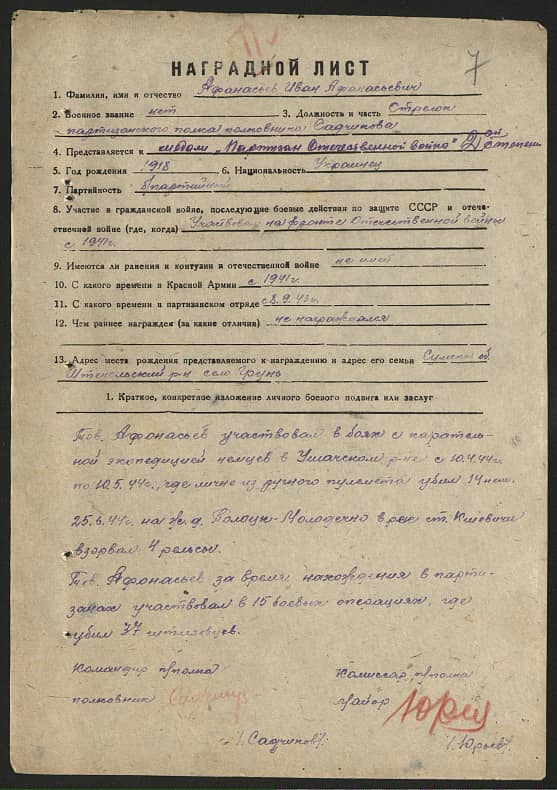 7
НАГРАДНОЙ ЛИСТ
1. Фамилия, имя и отчество Афанасьев Иван Афанасьевич
2. Военное звание нет 3. Должность и часть Стрелок
партизанского полка полковника Садчикова
4. Представляется к медали "Партизан Отечественной войны" 2ой степени
5. Год рождения 1918 6. Национальность Украинец
7. Партийность б/партийный
8. Участие в гражданской войне, последующие боевые действия по защите СССР и отече-
ственной войне (где, когда) Участвовал на фронте Отечественной войны
с 1941г.
9. Имеются ли ранения и контузии в отечественной войне не имеет
10. С какого времени в Красной Армии с 1941г.
11. С какого времени в партизанском отряде с 8.9.43г.
12. Чем раннее награжден (за какие отличия) не награждался
13. Адрес места рождения представляемого к награждению и адрес его семьи Сумская об.
р-н село Грунь
1. Краткое, конкретное изложение личного боевого подвига или заслуг
Тов. Афонасьев участвовал в боях с каратель-
ной экспедицией немцев в Ушачском р-не с 10.4.44г.
по 10.5.44г., где лично из ручного пулемета убил 14 нем.
25.6.44г. на ж.д. Полоцк-Молодечно в рек ст.
взорвал 4 рельсы.
Тов. Афонасьев за время нахождения в парти-
занах участвовал в 15 боевых операциях, где
убил 37 гитлеровцев.
Командир п/полка Комиссар п/полка
полковник Майор
/Садчиков/. /Юрьев/.